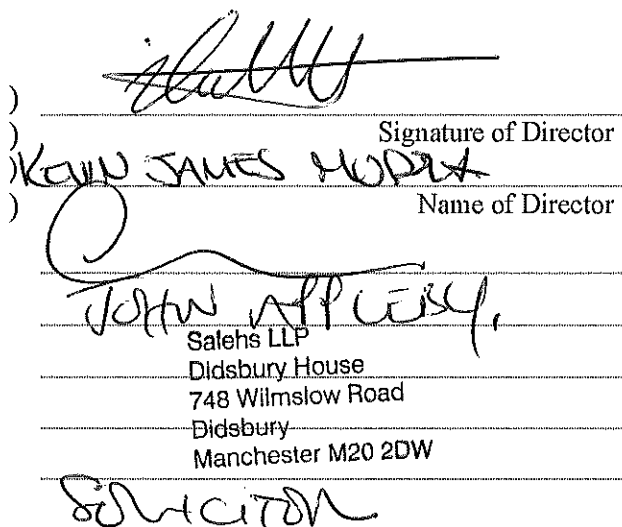 )
) Signature of Director
) KEVIN JAMES
) Name of Director
JOHN APPLEBY,
Salehs LLP
Didsbury House
748 Wilmslow Road
Didsbury
Manchester M20 2DW
SOLICITOR